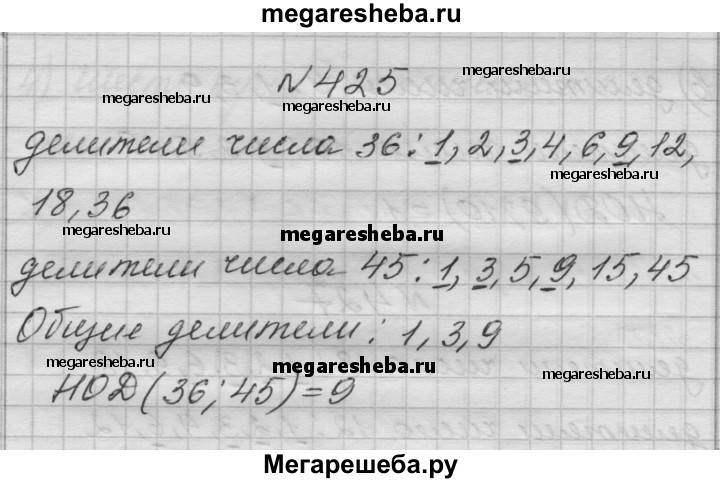 megaresheba.ru
№ 425
megaresheba.ru
megaresheba.ru
megaresheba.ru
делители числа 36: 1, 2, 3, 4, 6, 9, 12,
megaresheba.ru
18, 36
megaresheba.ru
megaresheba.ru
делители числа 45: 1, 3, 5, 9, 15, 45
Общие делители: 1, 3, 9
megaresheba.ru
megaresheba.ru
НОД (36; 45) = 9
Мегарешеба.ру